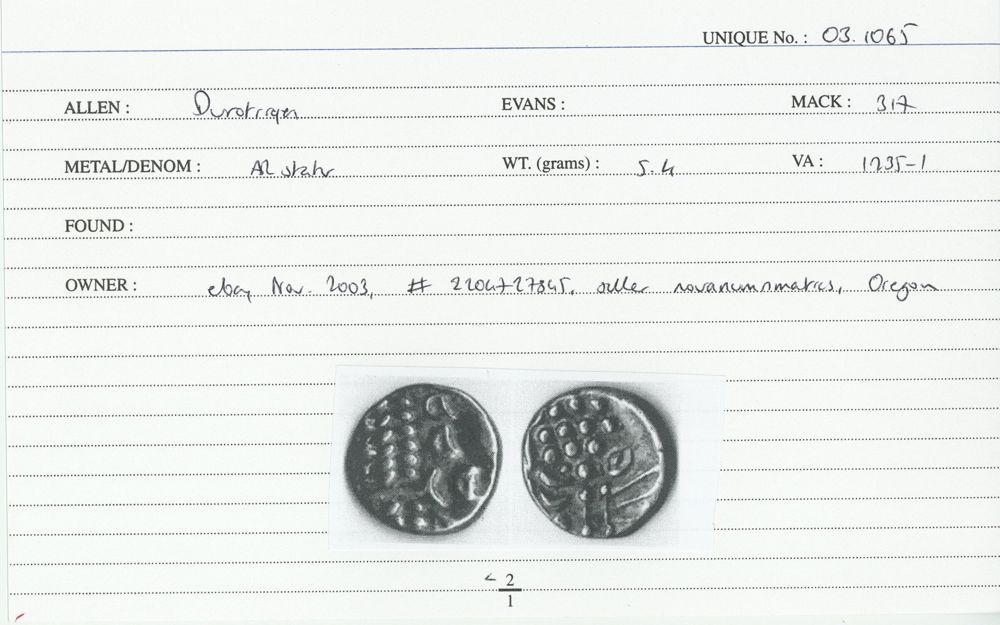 UNIQUE No. : 03.1065
ALLEN : Durotriges EVANS : MACK : 317
METAL/DENOM : AR stater WT. (grams) : 5.4 VA : 1235-1
FOUND :
OWNER : ebay Nov. 2003, # 2204727845, seller novanumismatics, Oregon
< 2
1